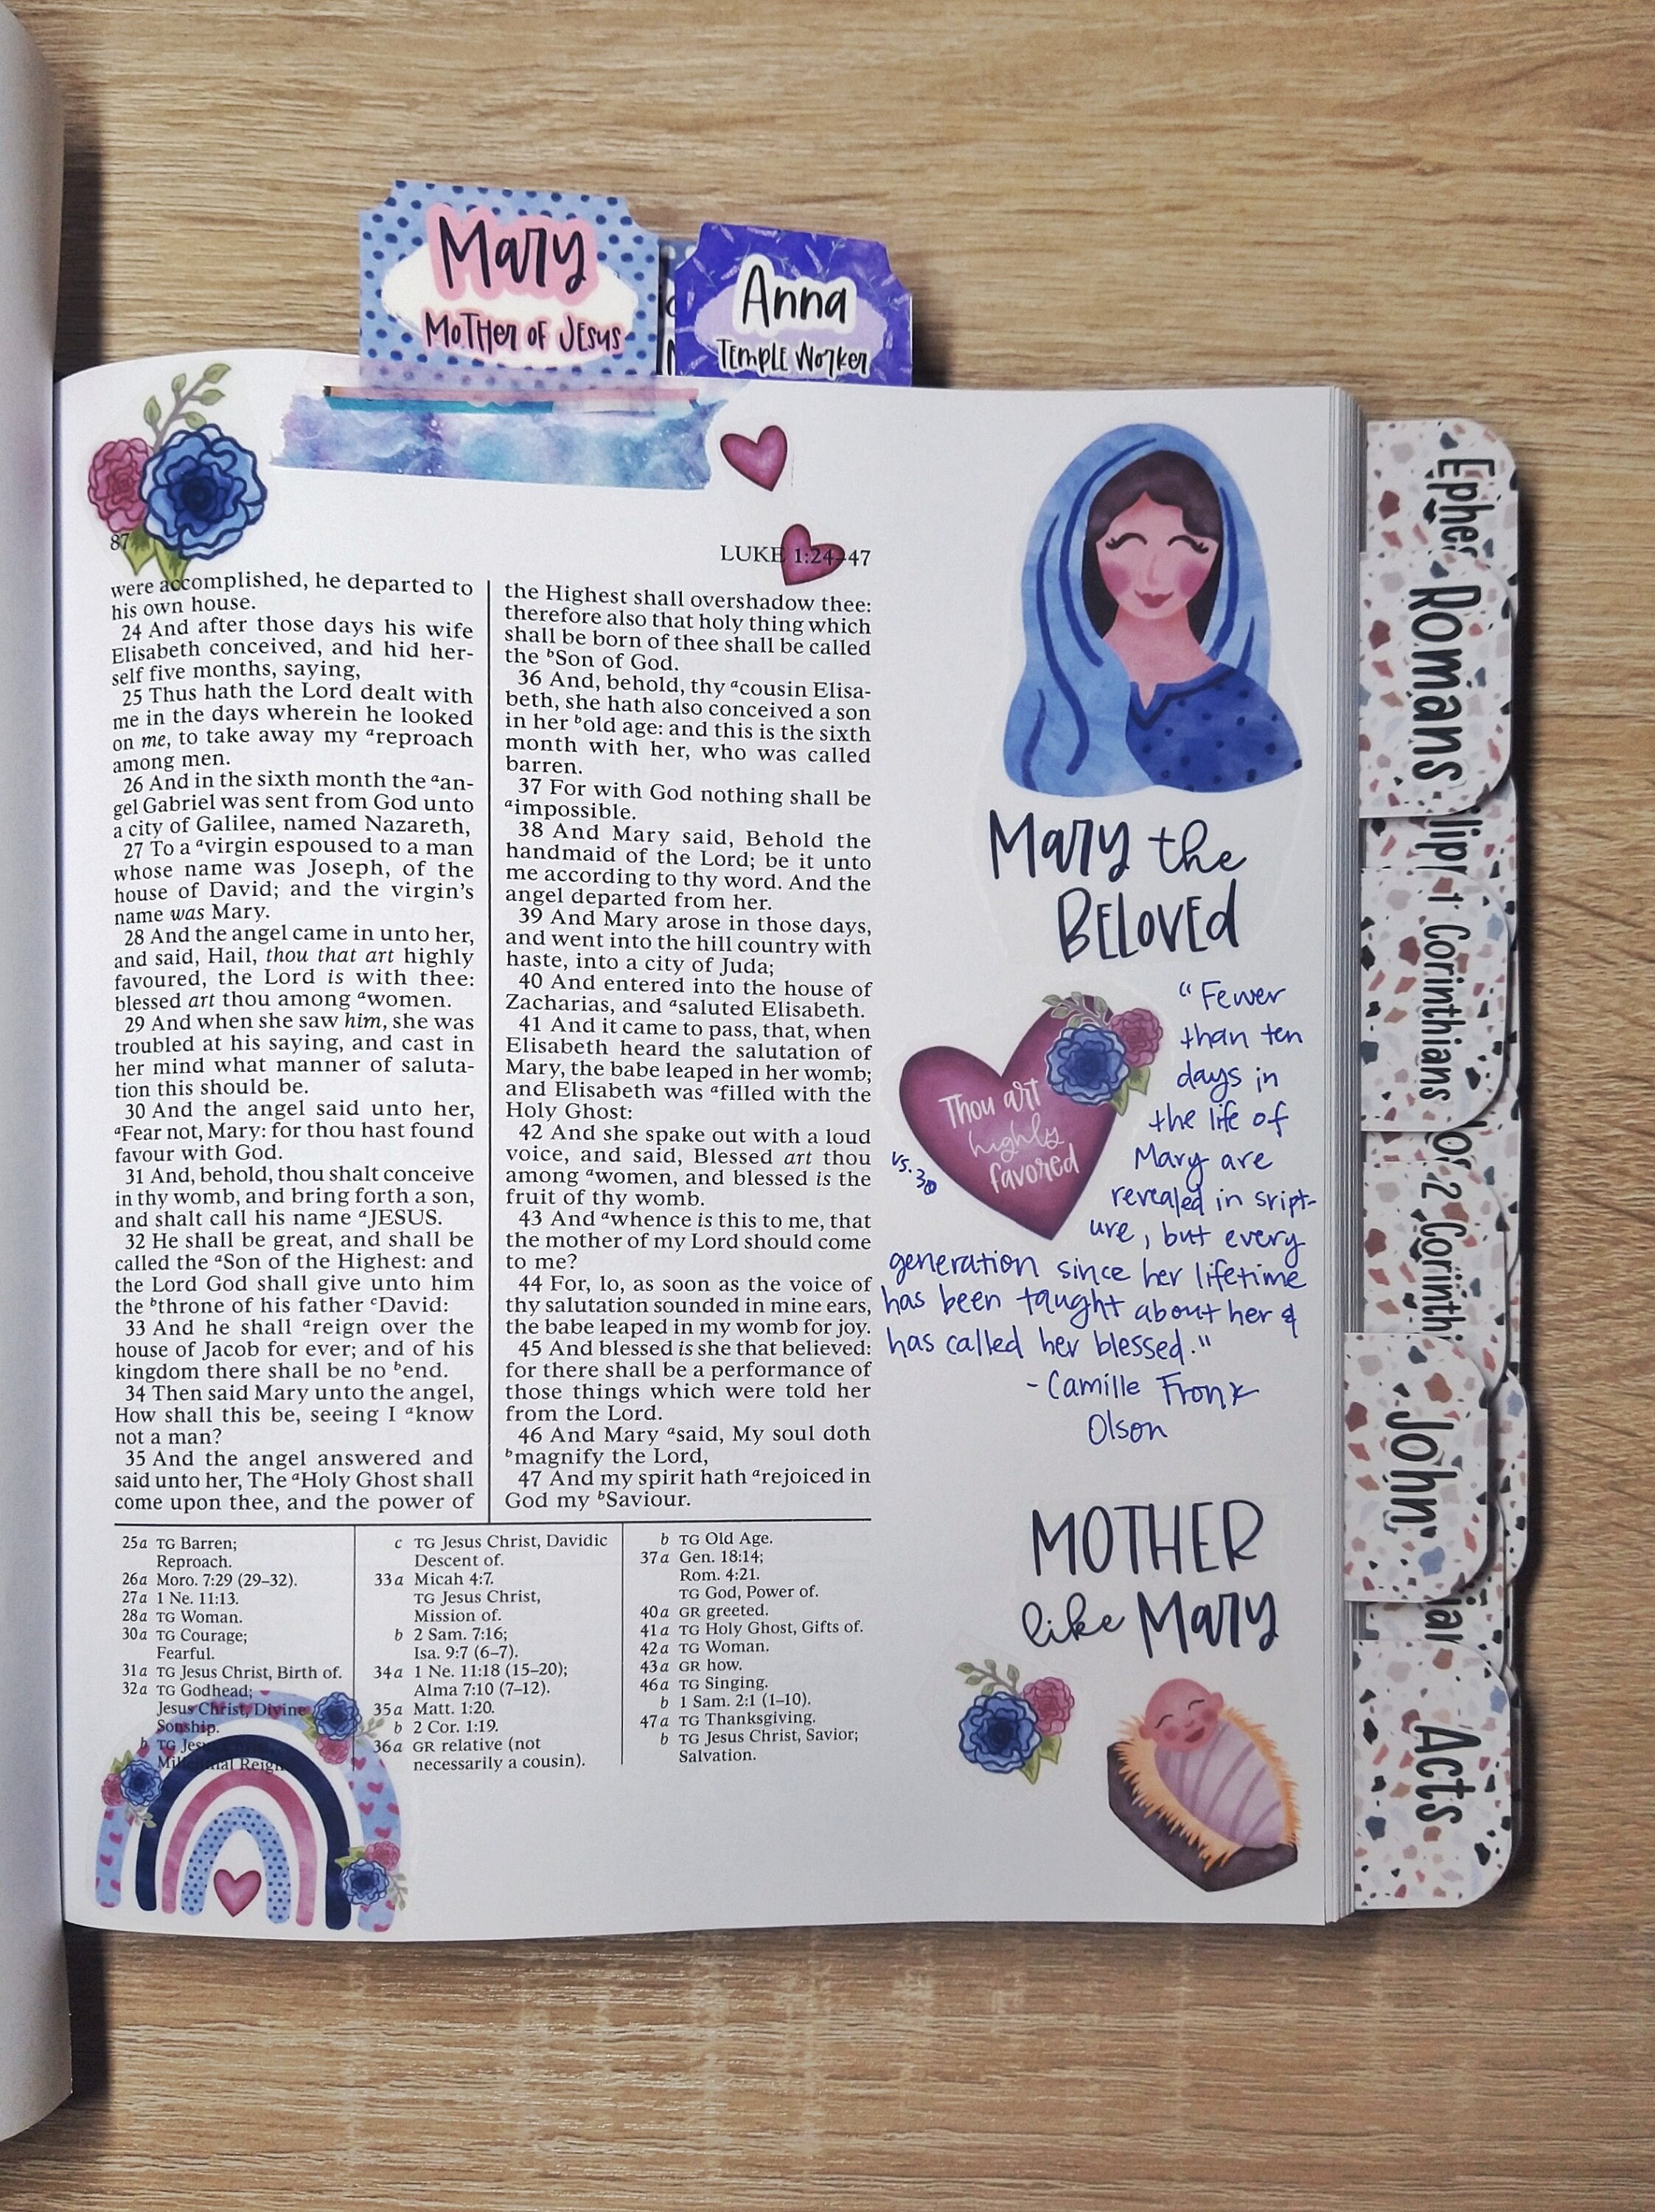 Mary
Mother of Jesus
Anna
Temple Worker
87
LUKE 1:24–47
were accomplished, he departed to
his own house.
24 And after those days his wife
Elisabeth conceived, and hid her-
self five months, saying,
25 Thus hath the Lord dealt with
me in the days wherein he looked
on me, to take away my ᵃreproach
among men.
26 And in the sixth month the ᵃan-
gel Gabriel was sent from God unto
a city of Galilee, named Nazareth,
27 To a ᵃvirgin espoused to a man
whose name was Joseph, of the
house of David; and the virgin's
name was Mary.
28 And the angel came in unto her,
and said, Hail, thou that art highly
favoured, the Lord is with thee:
blessed art thou among ᵃwomen.
29 And when she saw him, she was
troubled at his saying, and cast in
her mind what manner of saluta-
tion this should be.
30 And the angel said unto her,
ᵃFear not, Mary: for thou hast found
favour with God.
31 And, behold, thou shalt conceive
in thy womb, and bring forth a son,
and shalt call his name ᵃJESUS.
32 He shall be great, and shall be
called the ᵃSon of the Highest: and
the Lord God shall give unto him
the ᵇthrone of his father ᶜDavid:
33 And he shall ᵃreign over the
house of Jacob for ever; and of his
kingdom there shall be no ᵇend.
34 Then said Mary unto the angel,
How shall this be, seeing I ᵃknow
not a man?
35 And the angel answered and
said unto her, The ᵃHoly Ghost shall
come upon thee, and the power of
the Highest shall overshadow thee:
therefore also that holy thing which
shall be born of thee shall be called
the ᵇSon of God.
36 And, behold, thy ᵃcousin Elisa-
beth, she hath also conceived a son
in her ᵇold age: and this is the sixth
month with her, who was called
barren.
37 For with God nothing shall be
ᵃimpossible.
38 And Mary said, Behold the
handmaid of the Lord; be it unto
me according to thy word. And the
angel departed from her.
39 And Mary arose in those days,
and went into the hill country with
haste, into a city of Juda;
40 And entered into the house of
Zacharias, and ᵃsaluted Elisabeth.
41 And it came to pass, that, when
Elisabeth heard the salutation of
Mary, the babe leaped in her womb;
and Elisabeth was ᵃfilled with the
Holy Ghost:
42 And she spake out with a loud
voice, and said, Blessed art thou
among ᵃwomen, and blessed is the
fruit of thy womb.
43 And ᵃwhence is this to me, that
the mother of my Lord should come
to me?
44 For, lo, as soon as the voice of
thy salutation sounded in mine ears,
the babe leaped in my womb for joy.
45 And blessed is she that believed:
for there shall be a performance of
those things which were told her
from the Lord.
46 And Mary ᵃsaid, My soul doth
ᵇmagnify the Lord,
47 And my spirit hath ᵃrejoiced in
God my ᵇSaviour.
25a TG Barren;
Reproach.
26a Moro. 7:29 (29–32).
27a 1 Ne. 11:13.
28a TG Woman.
30a TG Courage;
Fearful.
31a TG Jesus Christ, Birth of.
32a TG Godhead;
Jesus Christ, Divine
Sonship.
b TG
Reign
c TG Jesus Christ, Davidic
Descent of.
33a Micah 4:7.
TG Jesus Christ,
Mission of.
b 2 Sam. 7:16;
Isa. 9:7 (6–7).
34a 1 Ne. 11:18 (15–20);
Alma 7:10 (7–12).
35a Matt. 1:20.
b 2 Cor. 1:19.
36a GR relative (not
necessarily a cousin).
b TG Old Age.
37a Gen. 18:14;
Rom. 4:21.
TG God, Power of.
40a GR greeted.
41a TG Holy Ghost, Gifts of.
42a TG Woman.
43a GR how.
46a TG Singing.
b 1 Sam. 2:1 (1–10).
47a TG Thanksgiving.
b TG Jesus Christ, Savior;
Salvation.
Mary the
Beloved
Thou art
highly
favored
vs. 30
"Fewer
than ten
days in
the life of
Mary are
revealed in sript-
ure, but every
generation since her lifetime
has been taught about her &
has called her blessed."
- Camille Fronk
Olson
MOTHER
like Mary
Ephes
Romans
1 Corinthians
2 Corinthi
John
Acts